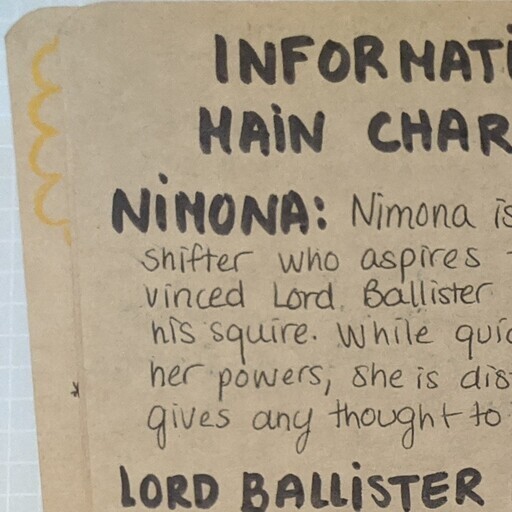 INFORMATI
MAIN CHAR
NIMONA: Nimona is
shifter who aspires
vinced Lord Ballister
his squire. While quic
her powers, she is dis
gives any thought to
LORD BALLISTER